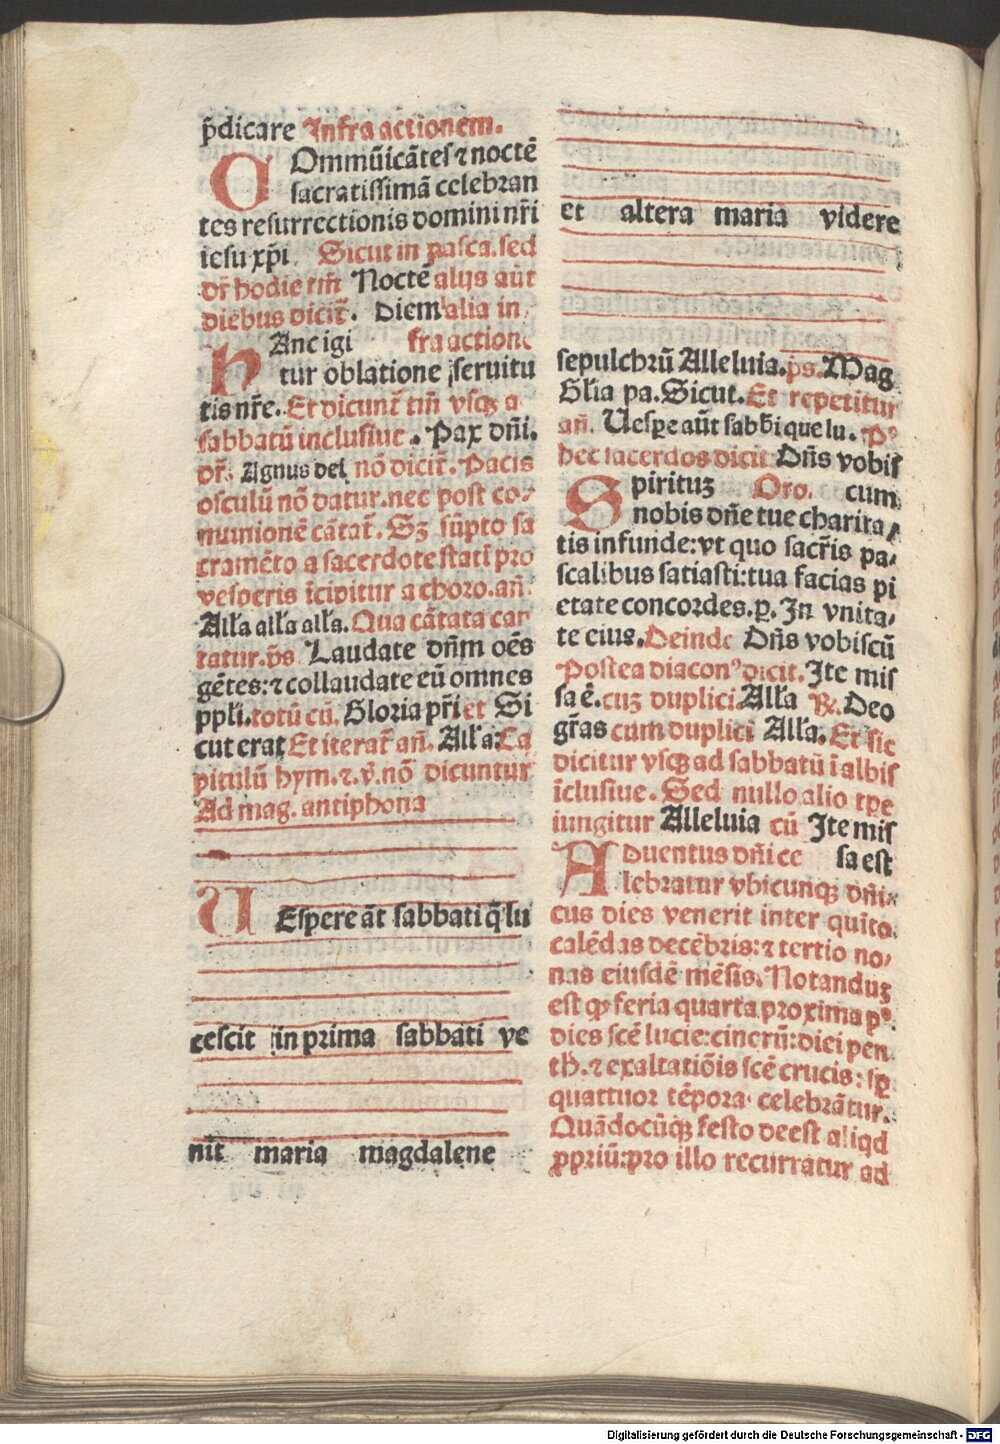 p̄dicare Infra actionem.
COmmūicātes ⁊ noctē
sacratissimā celebran
tes resurrectionis domini nr̄i
iesu xp̄i. Sicut in pasca. sed
dr̄ hodie tm̄ Noctē alijs aūt
diebus dicit̄. Diem alia in
HAnc igi fra actionē
tur oblationē seruitu
tis nr̄e. Et dicunt̄ tm̄ vsqꝫ a
sabbatū inclusiue. Pax dn̄i.
dr̄. Agnus dei nō dicit̄. Pacis
osculū nō datur. nec post co⸗
munionē cātat̄. Sꝫ sūpto sa
cramēto a sacerdote statī pro
vesperis īcipitur a choro. añ.
All'a all'a all'a. Qua cātata can
tatur. p̄s Laudate dn̄m oēs
gētes: ⁊ collaudate eū omnes
ppl'i. totū cū. Gloria pr̄i et Si
cut erat Et iterat̄ añ. All'a: Ca
pitulū hym. ⁊. v̄. nō dicuntur
Ad mag. antiphona
UEspere āt sabbati q̄ lu
cescit in prima sabbati ve
nit maria magdalene
et altera maria videre
sepulchrū Alleluia. ps. Mag
Gl'ia pa. Sicut. Et repetitur
añ. Uespe aūt sabb̄i que lu. Pꝰ
hec sacerdos dicit Dn̄s vobis
Spirituꝫ Oro. cum
nobis dn̄e tue charita⸗
tis infunde: vt quo sacr̄is pa⸗
scalibus satiasti: tua facias pi
etate concordes. p. In vnita⸗
te eius. Deinde Dn̄s vobiscū
Postea diaconꝰ dicit. Ite mis
sa ē. cuꝫ duplici All'a ℞. Deo
gr̄as cum duplici All'a. Et sic
dicitur vsqꝫ ad sabbatū ī albis
īclusiue. Sed nullo alio tpe
iungitur Alleluia cū Ite mis
ADuentus dn̄i ce sa est
lebratur vbicunqꝫ dn̄i⸗
cus dies venerit inter quīto
calēdas decēbris: ⁊ tertio no⸗
nas eiusdē mēsis. Notanduꝫ
est ꝙ feria quarta proxima pꝰ
dies scē lucie: cinerū: diei pen
th̄. ⁊ exaltatiōis scē crucis: sp
quattuor tēpora celebrātur.
Quādocūqꝫ festo deest aliqd
ꝓpriū: pro illo recurratur ad
Digitalisierung gefördert durch die Deutsche Forschungsgemeinschaft - DFG